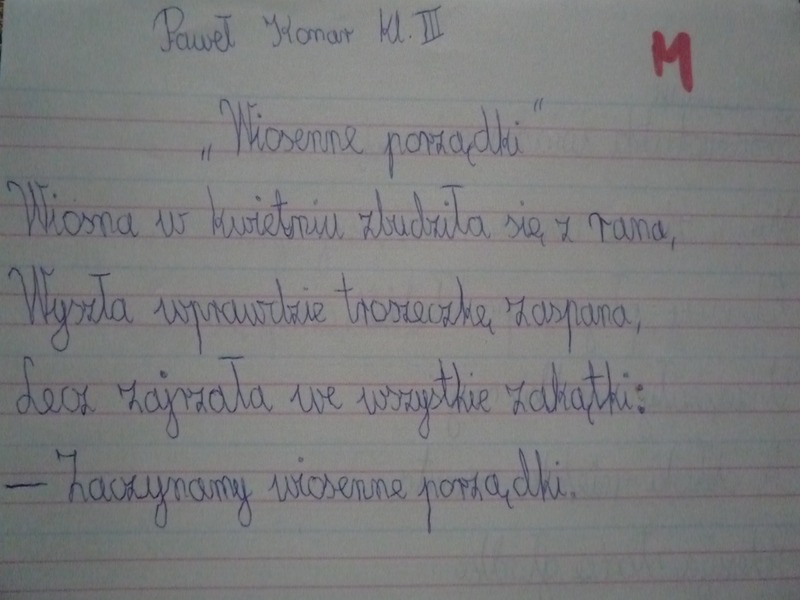 Paweł Konar kl. III
M
„Wiosenne porządki"
Wiosna w kwietniu zbudziła się z rana,
Wyszła wprawdzie troszeczkę zaspana,
Lecz zajrzała we wszystkie zakątki:
— Zaczynamy wiosenne porządki.